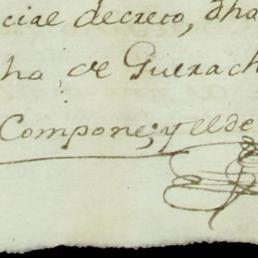 cial decreto, dha
ha, de Guerach
Compone; y el de